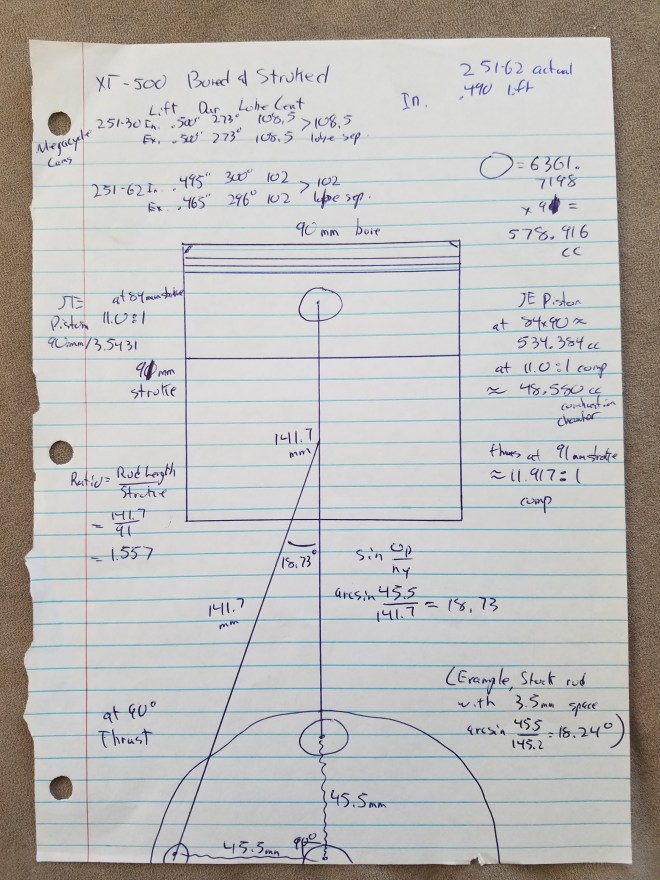 XT-500 Bored & Stroked
251-62 actual
In. .490 lift
Lift Dur Lobe Cent
Megacycle Cams
251-30 In. .500" 273° 108.5 > 108.5
Ex. .500" 273° 108.5 lobe sep.
251-62 In. .495" 300° 102 > 102
Ex. .465" 296° 102 lobe sep.
= 6361.
7198
x 91 =
578.916
cc
90mm bore
JE at 84mm stroke
Piston 11.0:1
90mm/3.5431
91mm
stroke
JE Piston
at 84x90 ≈
534.384cc
at 11.0:1 comp
≈ 48.580cc
combustion
chamber
thus at 91mm stroke
≈ 11.917:1
comp
141.7
mm
Ratio = Rod Length
Stroke
= 141.7
91
= 1.557
18.73°
sin op
hy
arcsin 45.5
141.7 = 18.73
141.7
mm
at 90°
Thrust
(Example, Stock rod
with 3.5mm space
arcsin 45.5
145.2 = 18.24°)
45.5mm
45.5mm
90°